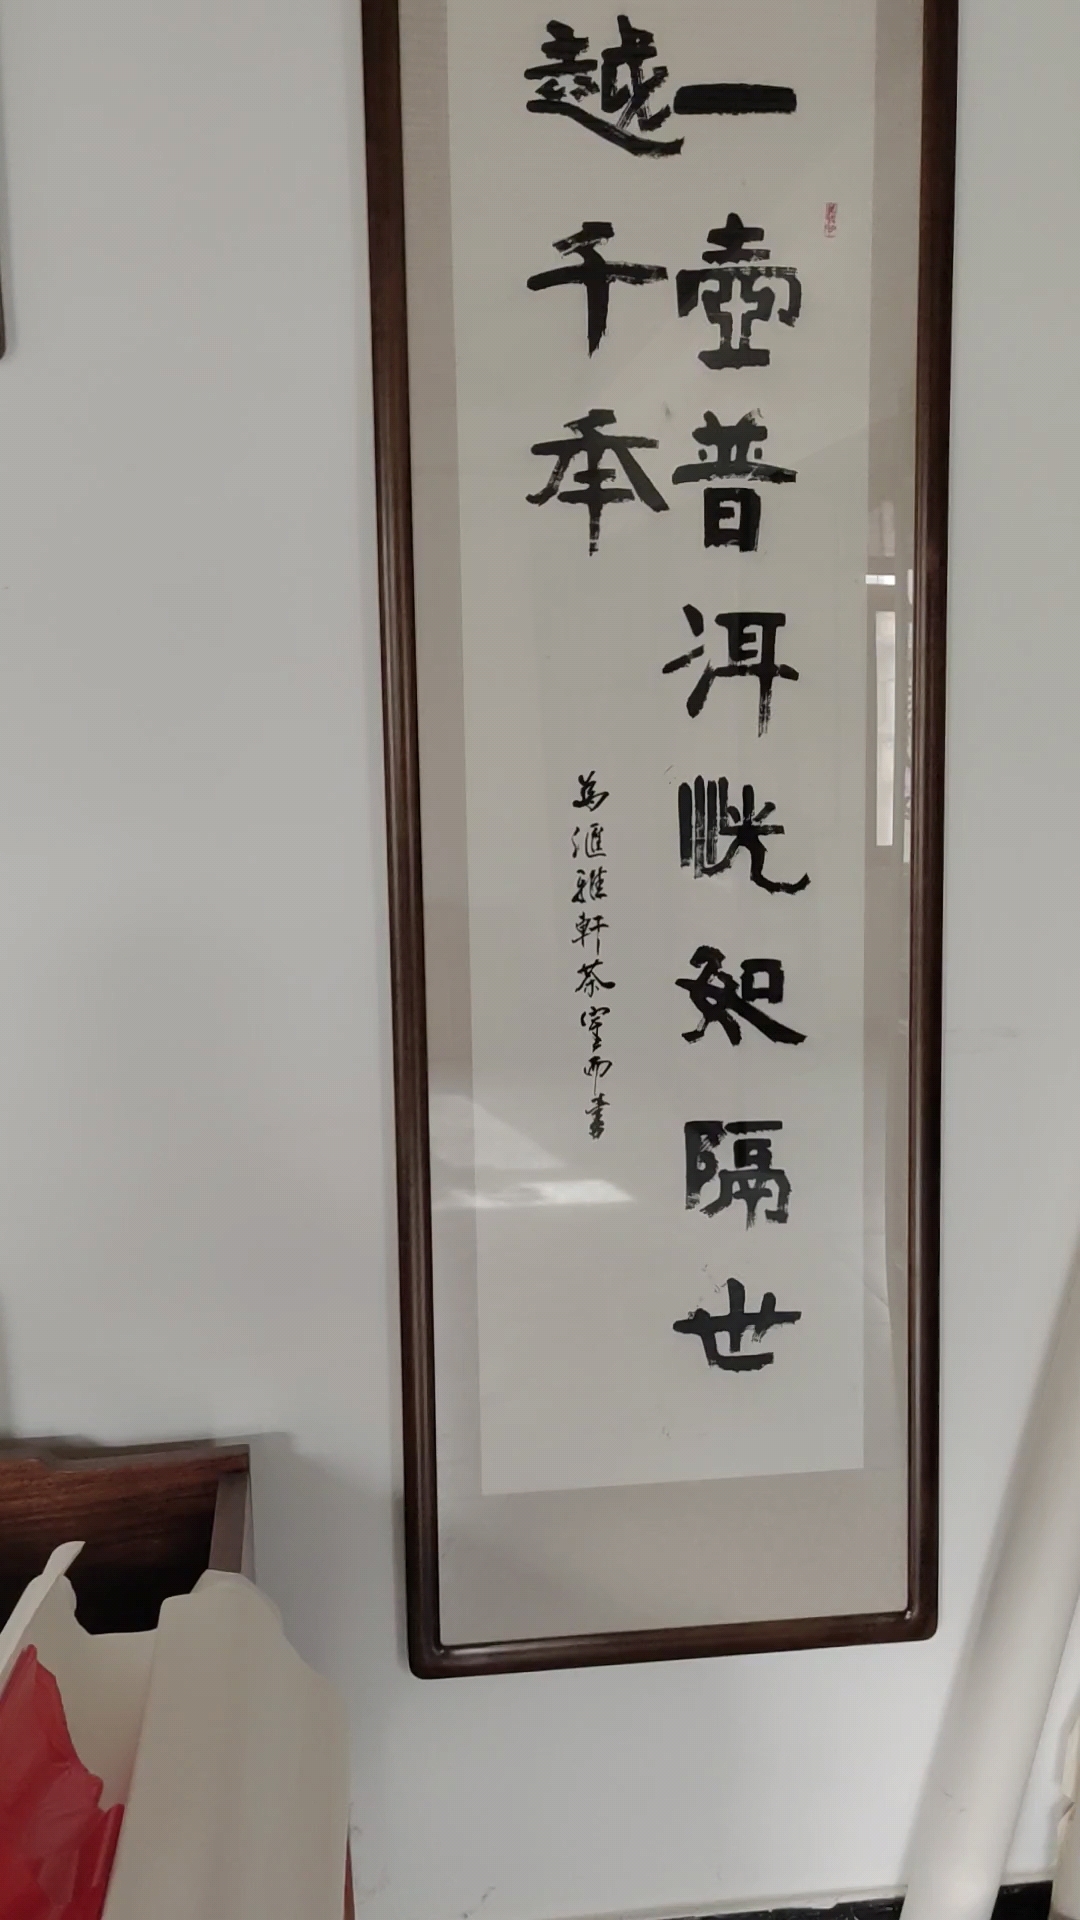 一壺普洱恍如隔世
越千年
為滙雅軒茶室而書